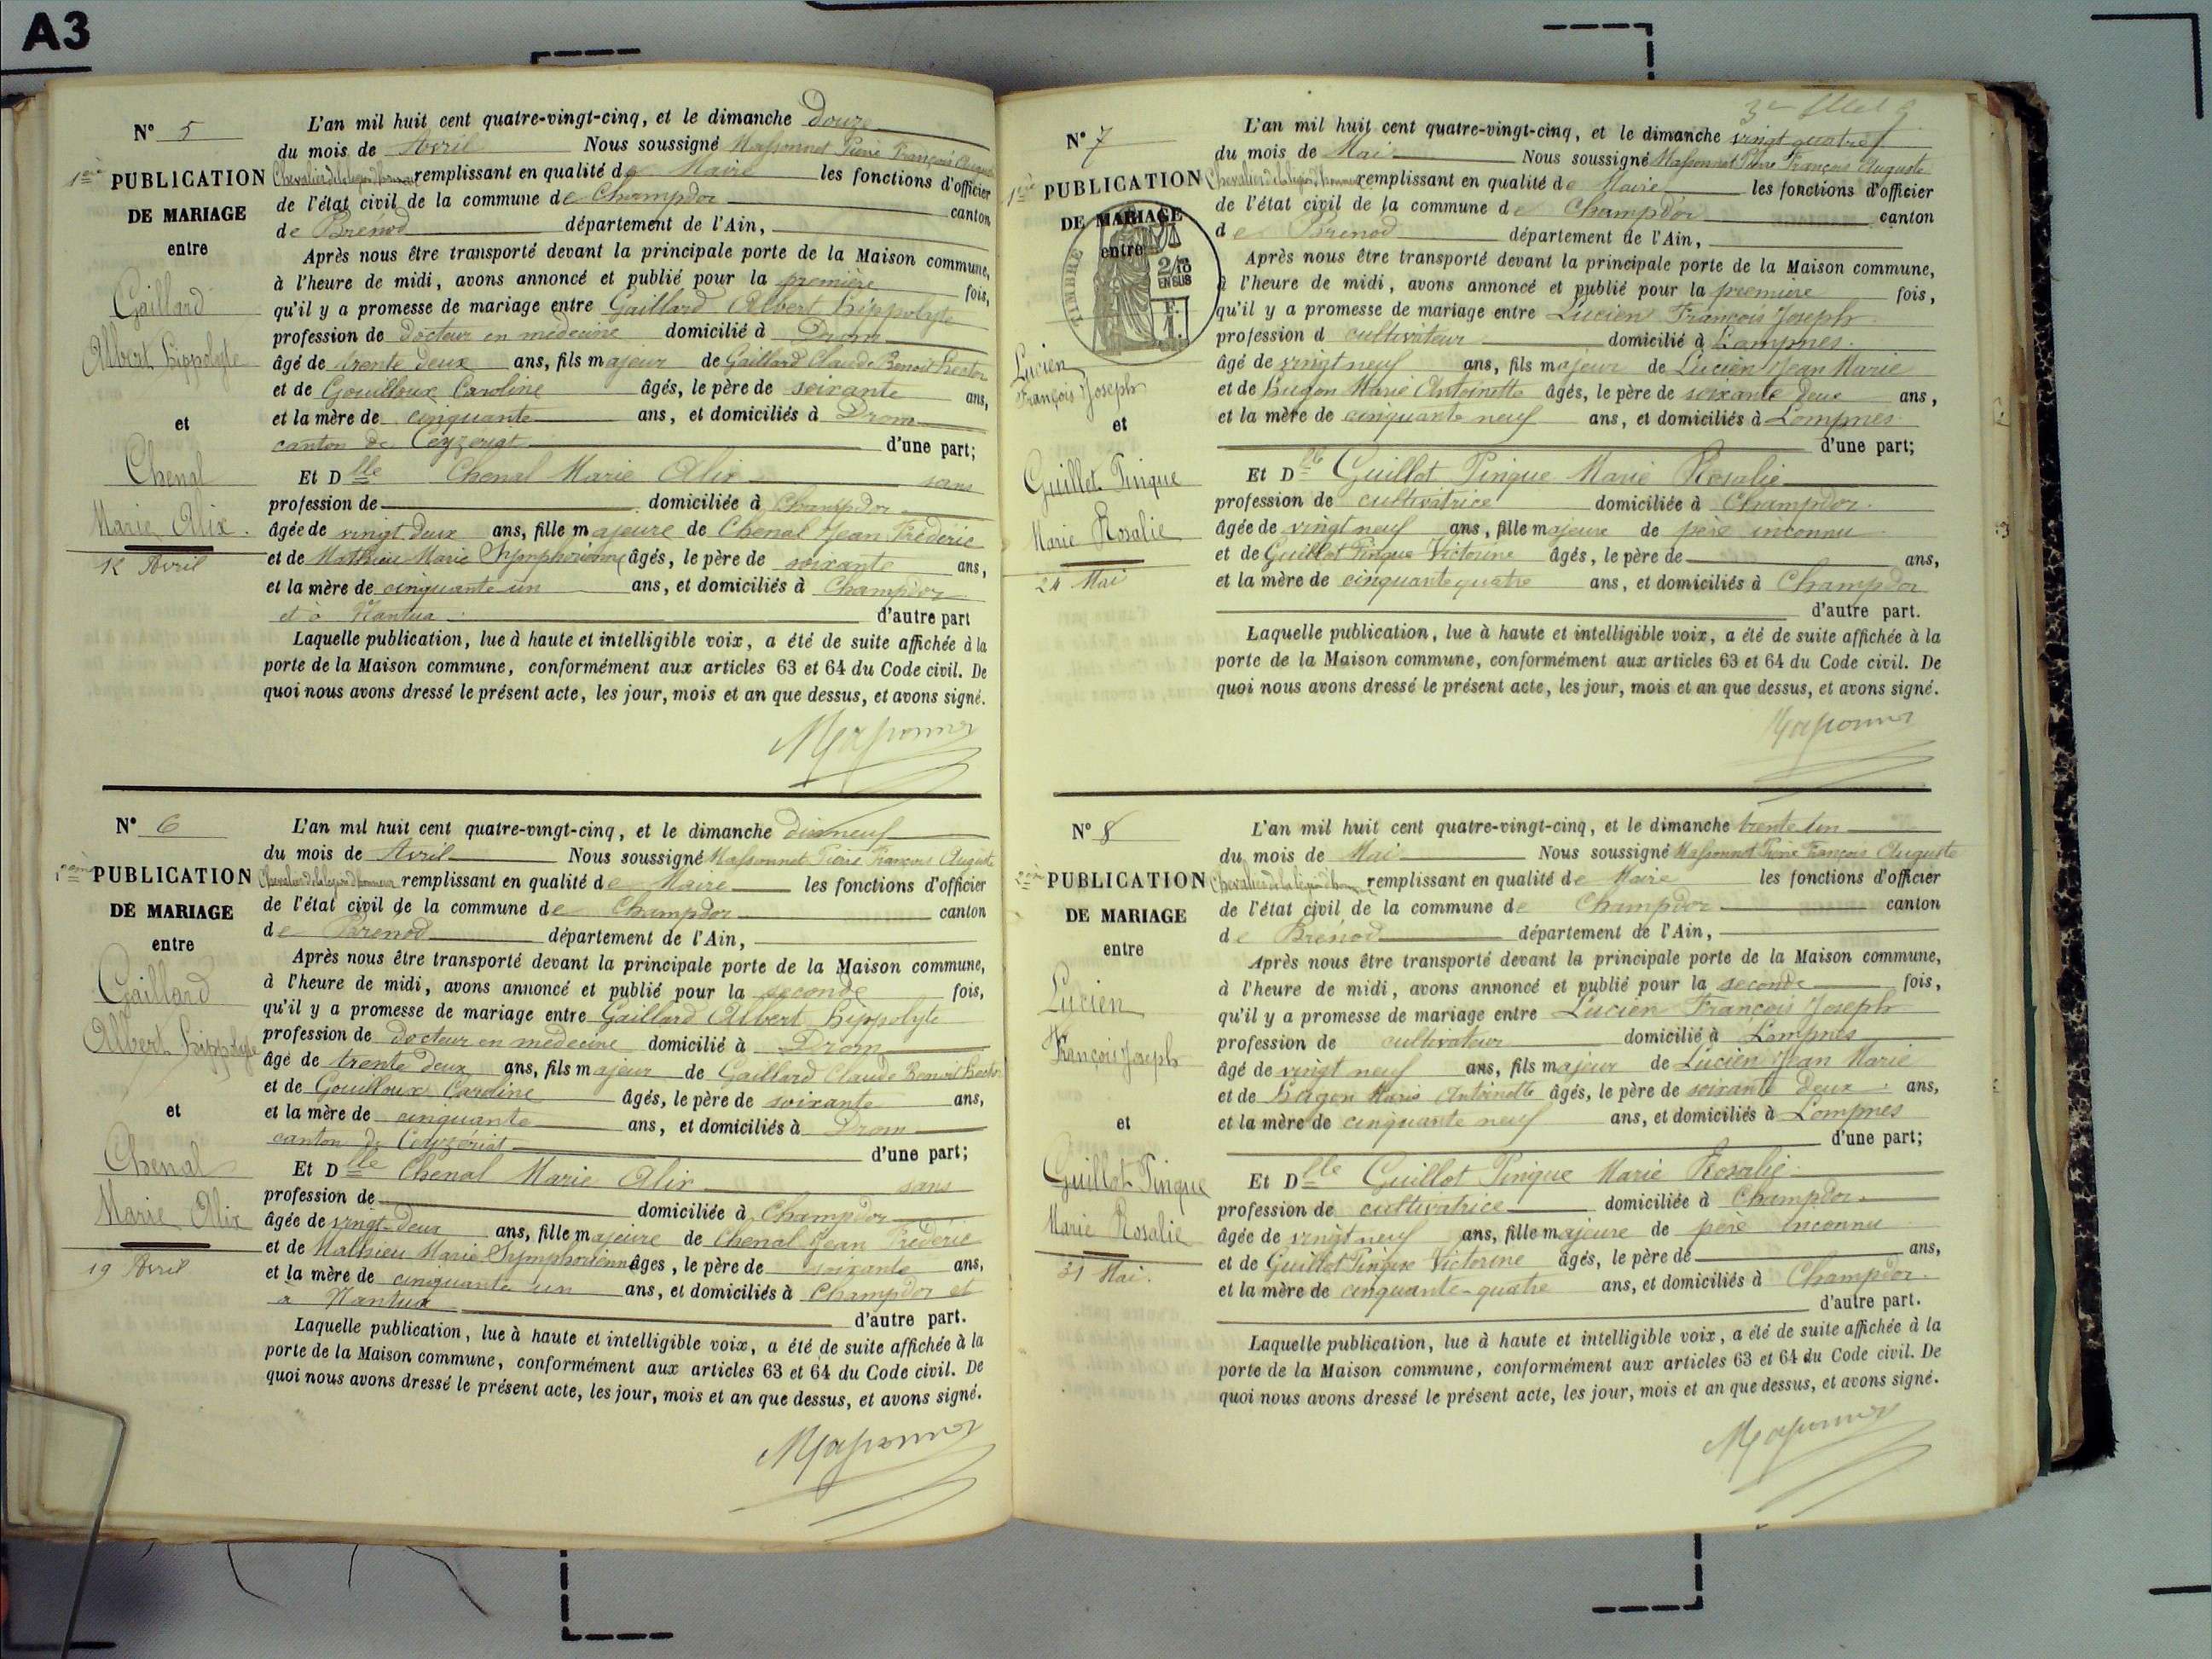 A3
N° 5
1ère PUBLICATION
DE MARIAGE
entre
Gaillard
Albert Hippolyte
et
Chenal
Marie Alix.
12 Avril
L'an mil huit cent quatre-vingt-cinq, et le dimanche douze
du mois de Avril Nous soussigné Massonnet Pierre François Auguste
Chevalier de la légion d'honneur remplissant en qualité de Maire les fonctions d'officier
de l'état civil de la commune de Champdor canton
de Brénod département de l'Ain,
Après nous être transporté devant la principale porte de la Maison commune,
à l'heure de midi, avons annoncé et publié pour la première fois,
qu'il y a promesse de mariage entre Gaillard Albert Hippolyte
profession de Docteur en médecine domicilié à Drom
âgé de trente deux ans, fils majeur de Gaillard Claude Benoit Hector
et de Gouilloux Caroline âgés, le père de soixante ans,
et la mère de cinquante ans, et domiciliés à Drom
canton de Ceyzeriat d'une part;
Et Dlle Chenal Marie Alix sans
profession de domiciliée à Champdor
âgée de vingt deux ans, fille majeure de Chenal Jean Frédéric
et de Mathieu Marie Symphorienne âgés, le père de soixante ans,
et la mère de cinquante un ans, et domiciliés à Champdor
et à Nantua d'autre part
Laquelle publication, lue à haute et intelligible voix, a été de suite affichée à la
porte de la Maison commune, conformément aux articles 63 et 64 du Code civil. De
quoi nous avons dressé le présent acte, les jour, mois et an que dessus, et avons signé.
Massonnet
N° 6
PUBLICATION
DE MARIAGE
entre
Gaillard
Albert Hippolyte
et
Chenal
Marie Alix
19 Avril
L'an mil huit cent quatre-vingt-cinq, et le dimanche dix neuf
du mois de Avril Nous soussigné Massonnet Pierre François Auguste
Chevalier de la légion d'honneur remplissant en qualité de Maire les fonctions d'officier
de l'état civil de la commune de Champdor canton
de Brénod département de l'Ain,
Après nous être transporté devant la principale porte de la Maison commune,
à l'heure de midi, avons annoncé et publié pour la seconde fois,
qu'il y a promesse de mariage entre Gaillard Albert Hippolyte
profession de Docteur en médecine domicilié à Drom
âgé de trente deux ans, fils majeur de Gaillard Claude Benoit Hector
et de Gouilloux Caroline âgés, le père de soixante ans,
et la mère de cinquante ans, et domiciliés à Drom
canton de Ceyzeriat d'une part;
Et Dlle Chenal Marie Alix sans
profession de domiciliée à Champdor
âgée de vingt deux ans, fille majeure de Chenal Jean Frédéric
et de Mathieu Marie Symphorienne âges, le père de soixante ans,
et la mère de cinquante un ans, et domiciliés à Champdor et
à Nantua d'autre part.
Laquelle publication, lue à haute et intelligible voix, a été de suite affichée à la
porte de la Maison commune, conformément aux articles 63 et 64 du Code civil. De
quoi nous avons dressé le présent acte, les jour, mois et an que dessus, et avons signé.
Massonnet
N° 7
1ère PUBLICATION
DE MARIAGE
entre
TIMBRE
2/10
EN SUS
Lucien
François Joseph
et
Guillot Pinque
Marie Rosalie
24 Mai
L'an mil huit cent quatre-vingt-cinq, et le dimanche vingt quatre
du mois de Mai Nous soussigné Massonnet Pierre François Auguste
Chevalier de la légion d'honneur remplissant en qualité de Maire les fonctions d'officier
de l'état civil de la commune de Champdor canton
de Brénod département de l'Ain,
Après nous être transporté devant la principale porte de la Maison commune,
à l'heure de midi, avons annoncé et publié pour la première fois,
qu'il y a promesse de mariage entre Lucien François Joseph
profession d cultivateur domicilié à Lompnes.
âgé de vingt neuf ans, fils majeur de Lucien Jean Marie
et de Hugon Marie Antoinette âgés, le père de soixante deux ans,
et la mère de cinquante neuf ans, et domiciliés à Lompnes
d'une part;
Et Dlle Guillot Pinque Marie Rosalie
profession de cultivatrice domiciliée à Champdor.
âgée de vingt neuf ans, fille majeure de père inconnu
et de Guillot Pinque Victorine âgés, le père de ans,
et la mère de cinquante quatre ans, et domiciliés à Champdor
d'autre part.
Laquelle publication, lue à haute et intelligible voix, a été de suite affichée à la
porte de la Maison commune, conformément aux articles 63 et 64 du Code civil. De
quoi nous avons dressé le présent acte, les jour, mois et an que dessus, et avons signé.
Massonnet
N° 8
2ème PUBLICATION
DE MARIAGE
entre
Lucien
François Joseph
et
Guillot Pinque
Marie Rosalie
31 Mai.
L'an mil huit cent quatre-vingt-cinq, et le dimanche trente un
du mois de Mai Nous soussigné Massonnet Pierre François Auguste
Chevalier de la légion d'honneur remplissant en qualité de Maire les fonctions d'officier
de l'état civil de la commune de Champdor canton
de Brénod département de l'Ain,
Après nous être transporté devant la principale porte de la Maison commune,
à l'heure de midi, avons annoncé et publié pour la seconde fois,
qu'il y a promesse de mariage entre Lucien François Joseph
profession de cultivateur domicilié à Lompnes
âgé de vingt neuf ans, fils majeur de Lucien Jean Marie
et de Hugon Marie Antoinette âgés, le père de soixante deux ans,
et la mère de cinquante neuf ans, et domiciliés à Lompnes
d'une part;
Et Dlle Guillot Pinque Marie Rosalie
profession de cultivatrice domiciliée à Champdor.
âgée de vingt neuf ans, fille majeure de père inconnu
et de Guillot Pinque Victorine âgés, le père de ans,
et la mère de cinquante-quatre ans, et domiciliés à Champdor.
d'autre part.
Laquelle publication, lue à haute et intelligible voix, a été de suite affichée à la
porte de la Maison commune, conformément aux articles 63 et 64 du Code civil. De
quoi nous avons dressé le présent acte, les jour, mois et an que dessus, et avons signé.
Massonnet